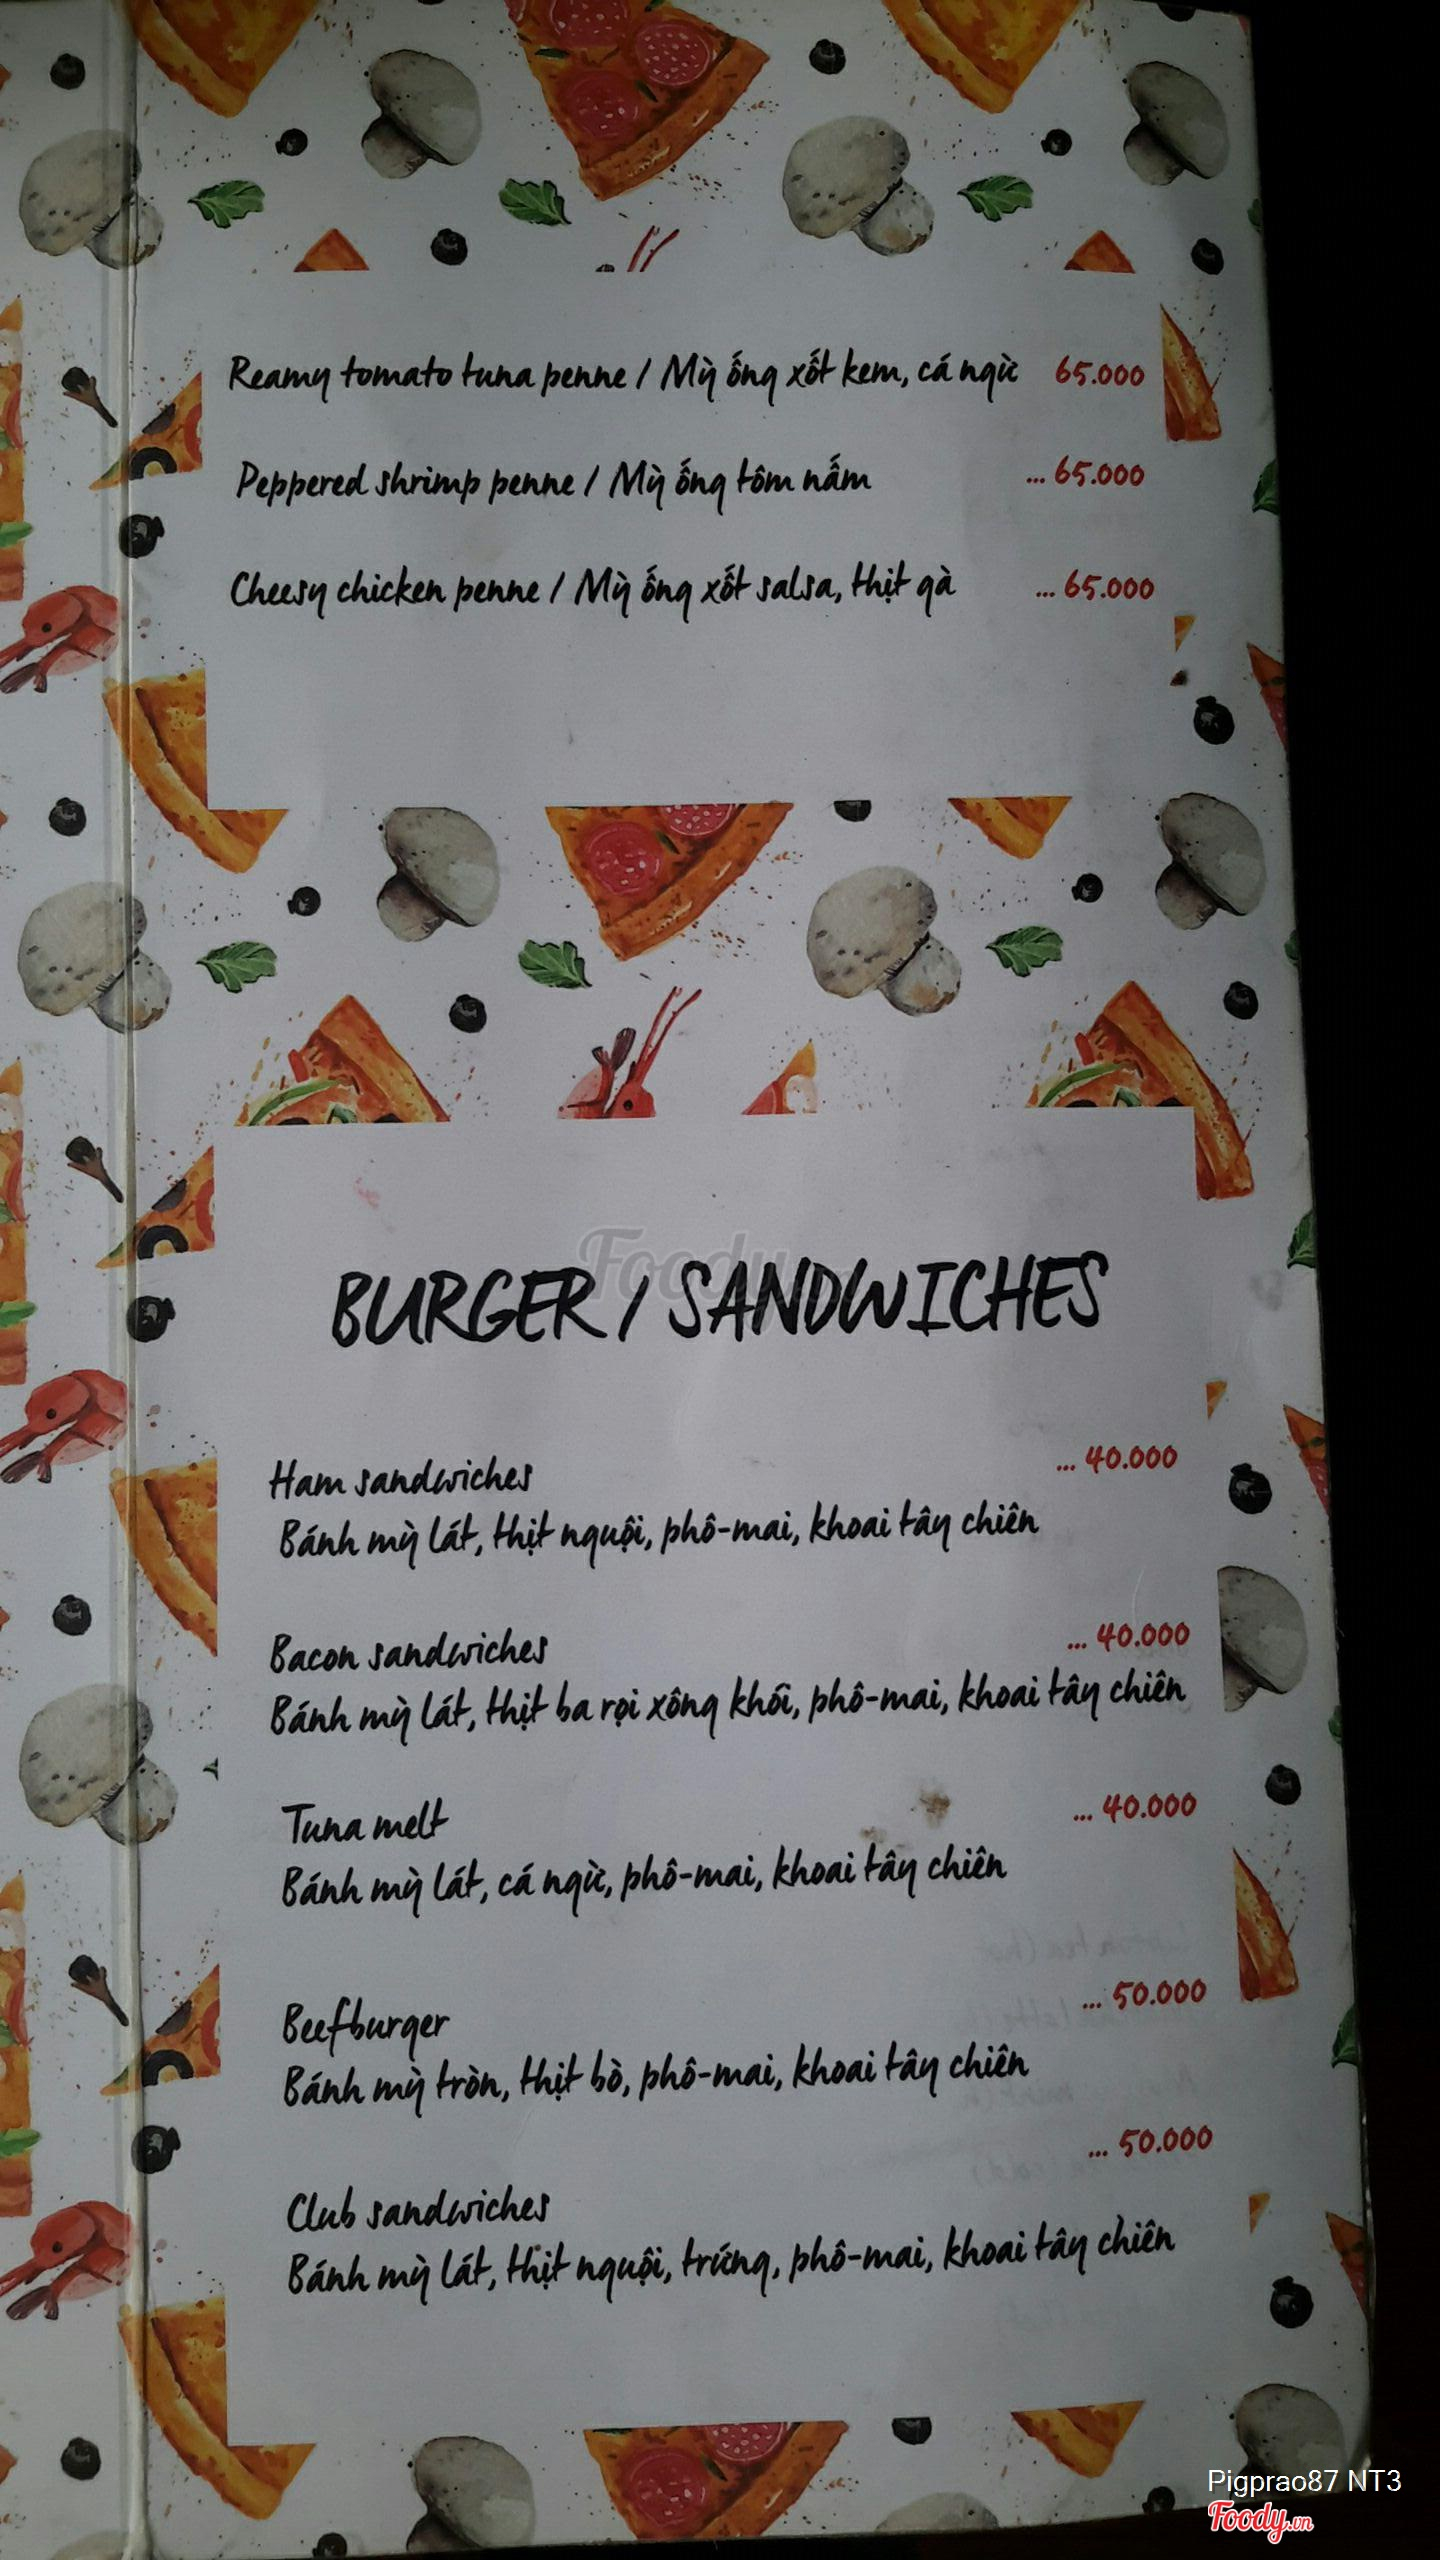 Reamy tomato tuna penne / Mỳ ống xốt kem, cá ngừ 65.000
Peppered shrimp penne / Mỳ ống tôm nấm ... 65.000
Cheesy chicken penne / Mỳ ống xốt salsa, thịt gà ... 65.000
Foody.vn
BURGER / SANDWICHES
Ham sandwiches ... 40.000
Bánh mỳ lát, thịt nguội, phô-mai, khoai tây chiên
Bacon sandwiches ... 40.000
Bánh mỳ lát, thịt ba rọi xông khói, phô-mai, khoai tây chiên
Tuna melt ... 40.000
Bánh mỳ lát, cá ngừ, phô-mai, khoai tây chiên
Beefburger ... 50.000
Bánh mỳ tròn, thịt bò, phô-mai, khoai tây chiên
Club sandwiches ... 50.000
Bánh mỳ lát, thịt nguội, trứng, phô-mai, khoai tây chiên
Pigprao87 NT3
Foody.vn